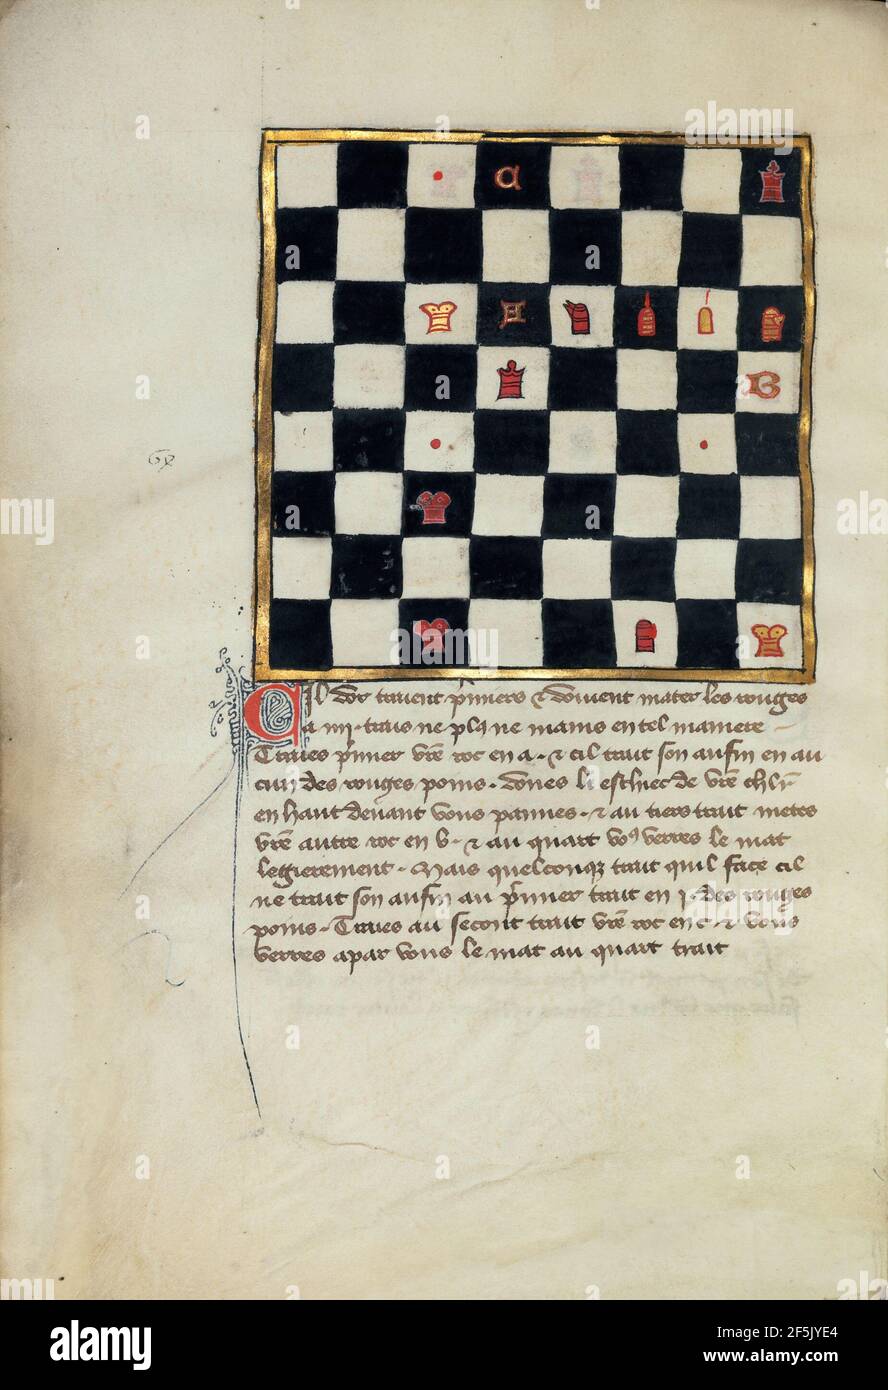 C
A
B
CIl dor traient p'miers & doivent mater les rouges
a iiii · trais ne pl9 ne mains en tel maniere
Traies p'mier vre roc en a · & cil trait son aufin en au
cun des rouges poins · dones li eschiec de vre chlr
en haut devant vous pannes · & au tiers trait metes
vre autre roc en b · & au quart vo9 verres le mat
legierement · Mais quelconq trait quil face cil
ne trait son aufin au p'mier trait en i · des rouges
poins · Traies au secont trait vre roc en c · & vous
verres apar vous le mat au quart trait
alamy
Image ID: 2F5JYE4
www.alamy.com